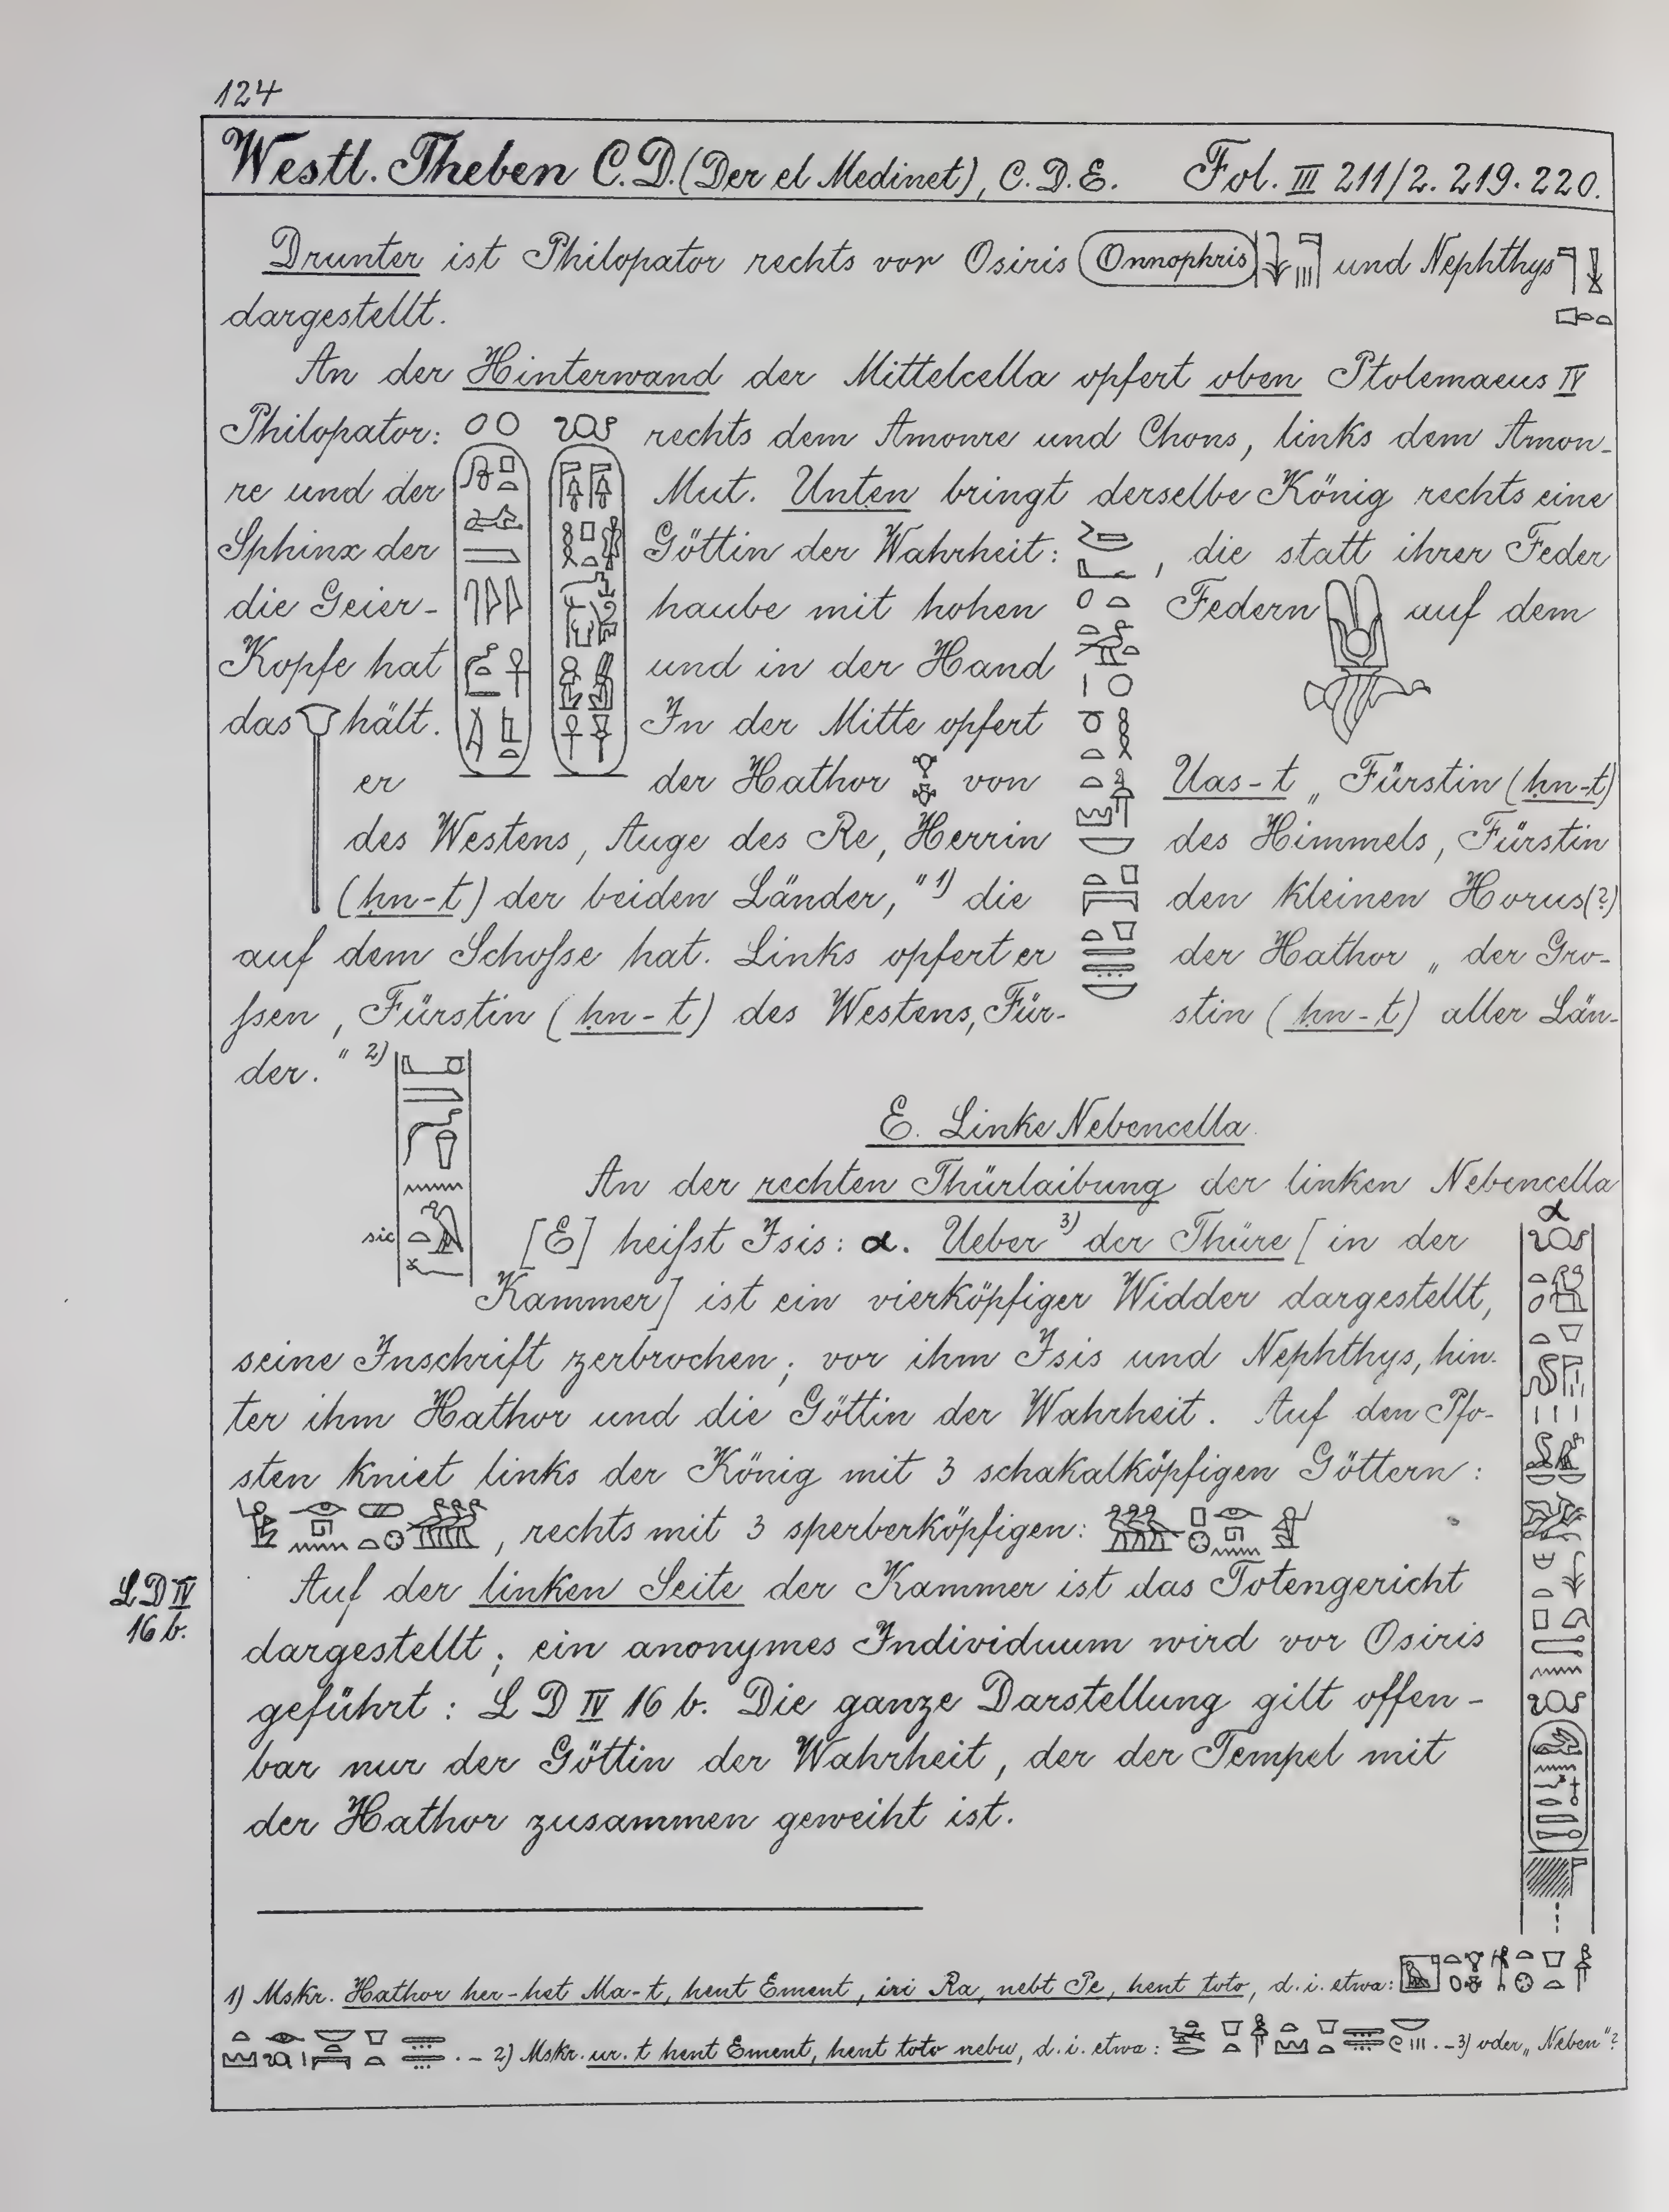 124
Westl. Theben C.D. (Der el Medinet), C.D.E. Fol. III 211/2. 219. 220.
Drunter ist Philopator rechts vor Osiris (Onnophris) und Nephthys
dargestellt.
An der Hinterwand der Mittelcella opfert oben Ptolemaeus IV
Philopator: rechts dem Amonre und Chons, links dem Amon-
re und der Mut. Unten bringt derselbe König rechts eine
Sphinx der Göttin der Wahrheit: , die statt ihrer Feder
die Geier- haube mit hohen Federn auf dem
Kopfe hat und in der Hand
das hält. In der Mitte opfert
er der Hathor von Uas-t „Fürstin (ḥn-t)
des Westens, Auge des Re, Herrin des Himmels, Fürstin
(ḥn-t) der beiden Länder," 1) die den kleinen Horus(?)
auf dem Schoſse hat. Links opfert er der Hathor „der Gro-
ſsen, Fürstin (ḥn-t) des Westens, Für- stin (ḥn-t) aller Län-
der." 2)
E. Linke Nebencella.
An der rechten Thürlaibung der linken Nebencella
sic [E] heiſst Isis: α. Ueber 3) der Thüre [in der
α
Kammer] ist ein vierköpfiger Widder dargestellt,
seine Inschrift zerbrochen; vor ihm Isis und Nephthys, hin-
ter ihm Hathor und die Göttin der Wahrheit. Auf den Pfo-
sten kniet links der König mit 3 schakalköpfigen Göttern:
, rechts mit 3 sperberköpfigen:
LD IV
16 b.
Auf der linken Seite der Kammer ist das Totengericht
dargestellt; ein anonymes Individuum wird vor Osiris
geführt: LD IV 16 b. Die ganze Darstellung gilt offen-
bar nur der Göttin der Wahrheit, der der Tempel mit
der Hathor zusammen geweiht ist.
1) Mskr. Hathor her-het Ma-t, hent Ement, iri Ra, nebt Pe, hent toto, d.i. etwa:
. – 2) Mskr. ur.t hent Ement, hent toto nebu, d.i. etwa: . – 3) oder „Neben"?